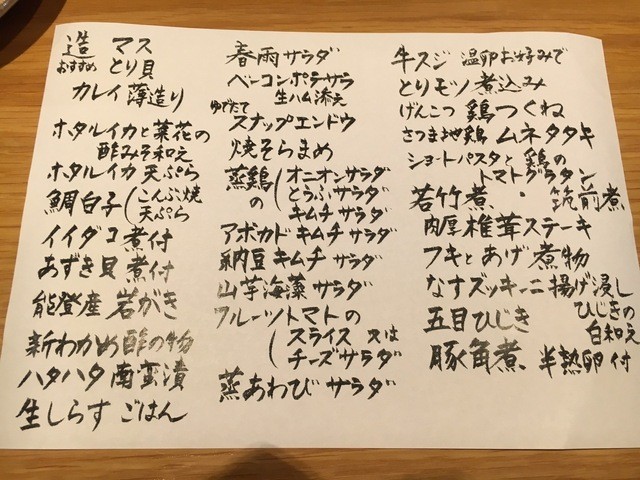 造 マス
おすすめ とり貝
カレイ 薄造り
ホタルイカと菜花の
酢みそ和え
ホタルイカ 天ぷら
鯛白子(こんぶ焼
天ぷら
イイダコ煮付
あずき貝 煮付
能登産 岩がき
新わかめ酢の物
ハタハタ南蛮漬
生しらす ごはん
春雨サラダ
ベーコンポテサラ
生ハム添え
ゆでたて
スナップエンドウ
焼そらまめ
蒸鶏の(オニオンサラダ
とうふサラダ
キムチ サラダ
アボカドキムチ サラダ
納豆キムチ サラダ
山芋海藻 サラダ
フルーツトマトの
(スライス 又は
チーズサラダ
蒸あわび サラダ
牛スジ 温卵お好みで
とりモツ煮込み
げんこつ 鶏つくね
さつま地鶏 ムネタタキ
ショートパスタと 鶏の
トマトグラタン
若竹煮・筑前煮
肉厚椎茸ステーキ
フキとあげ 煮物
なすズッキーニ揚げ浸し
五目ひじき ひじきの
白和え
豚角煮 半熟卵付